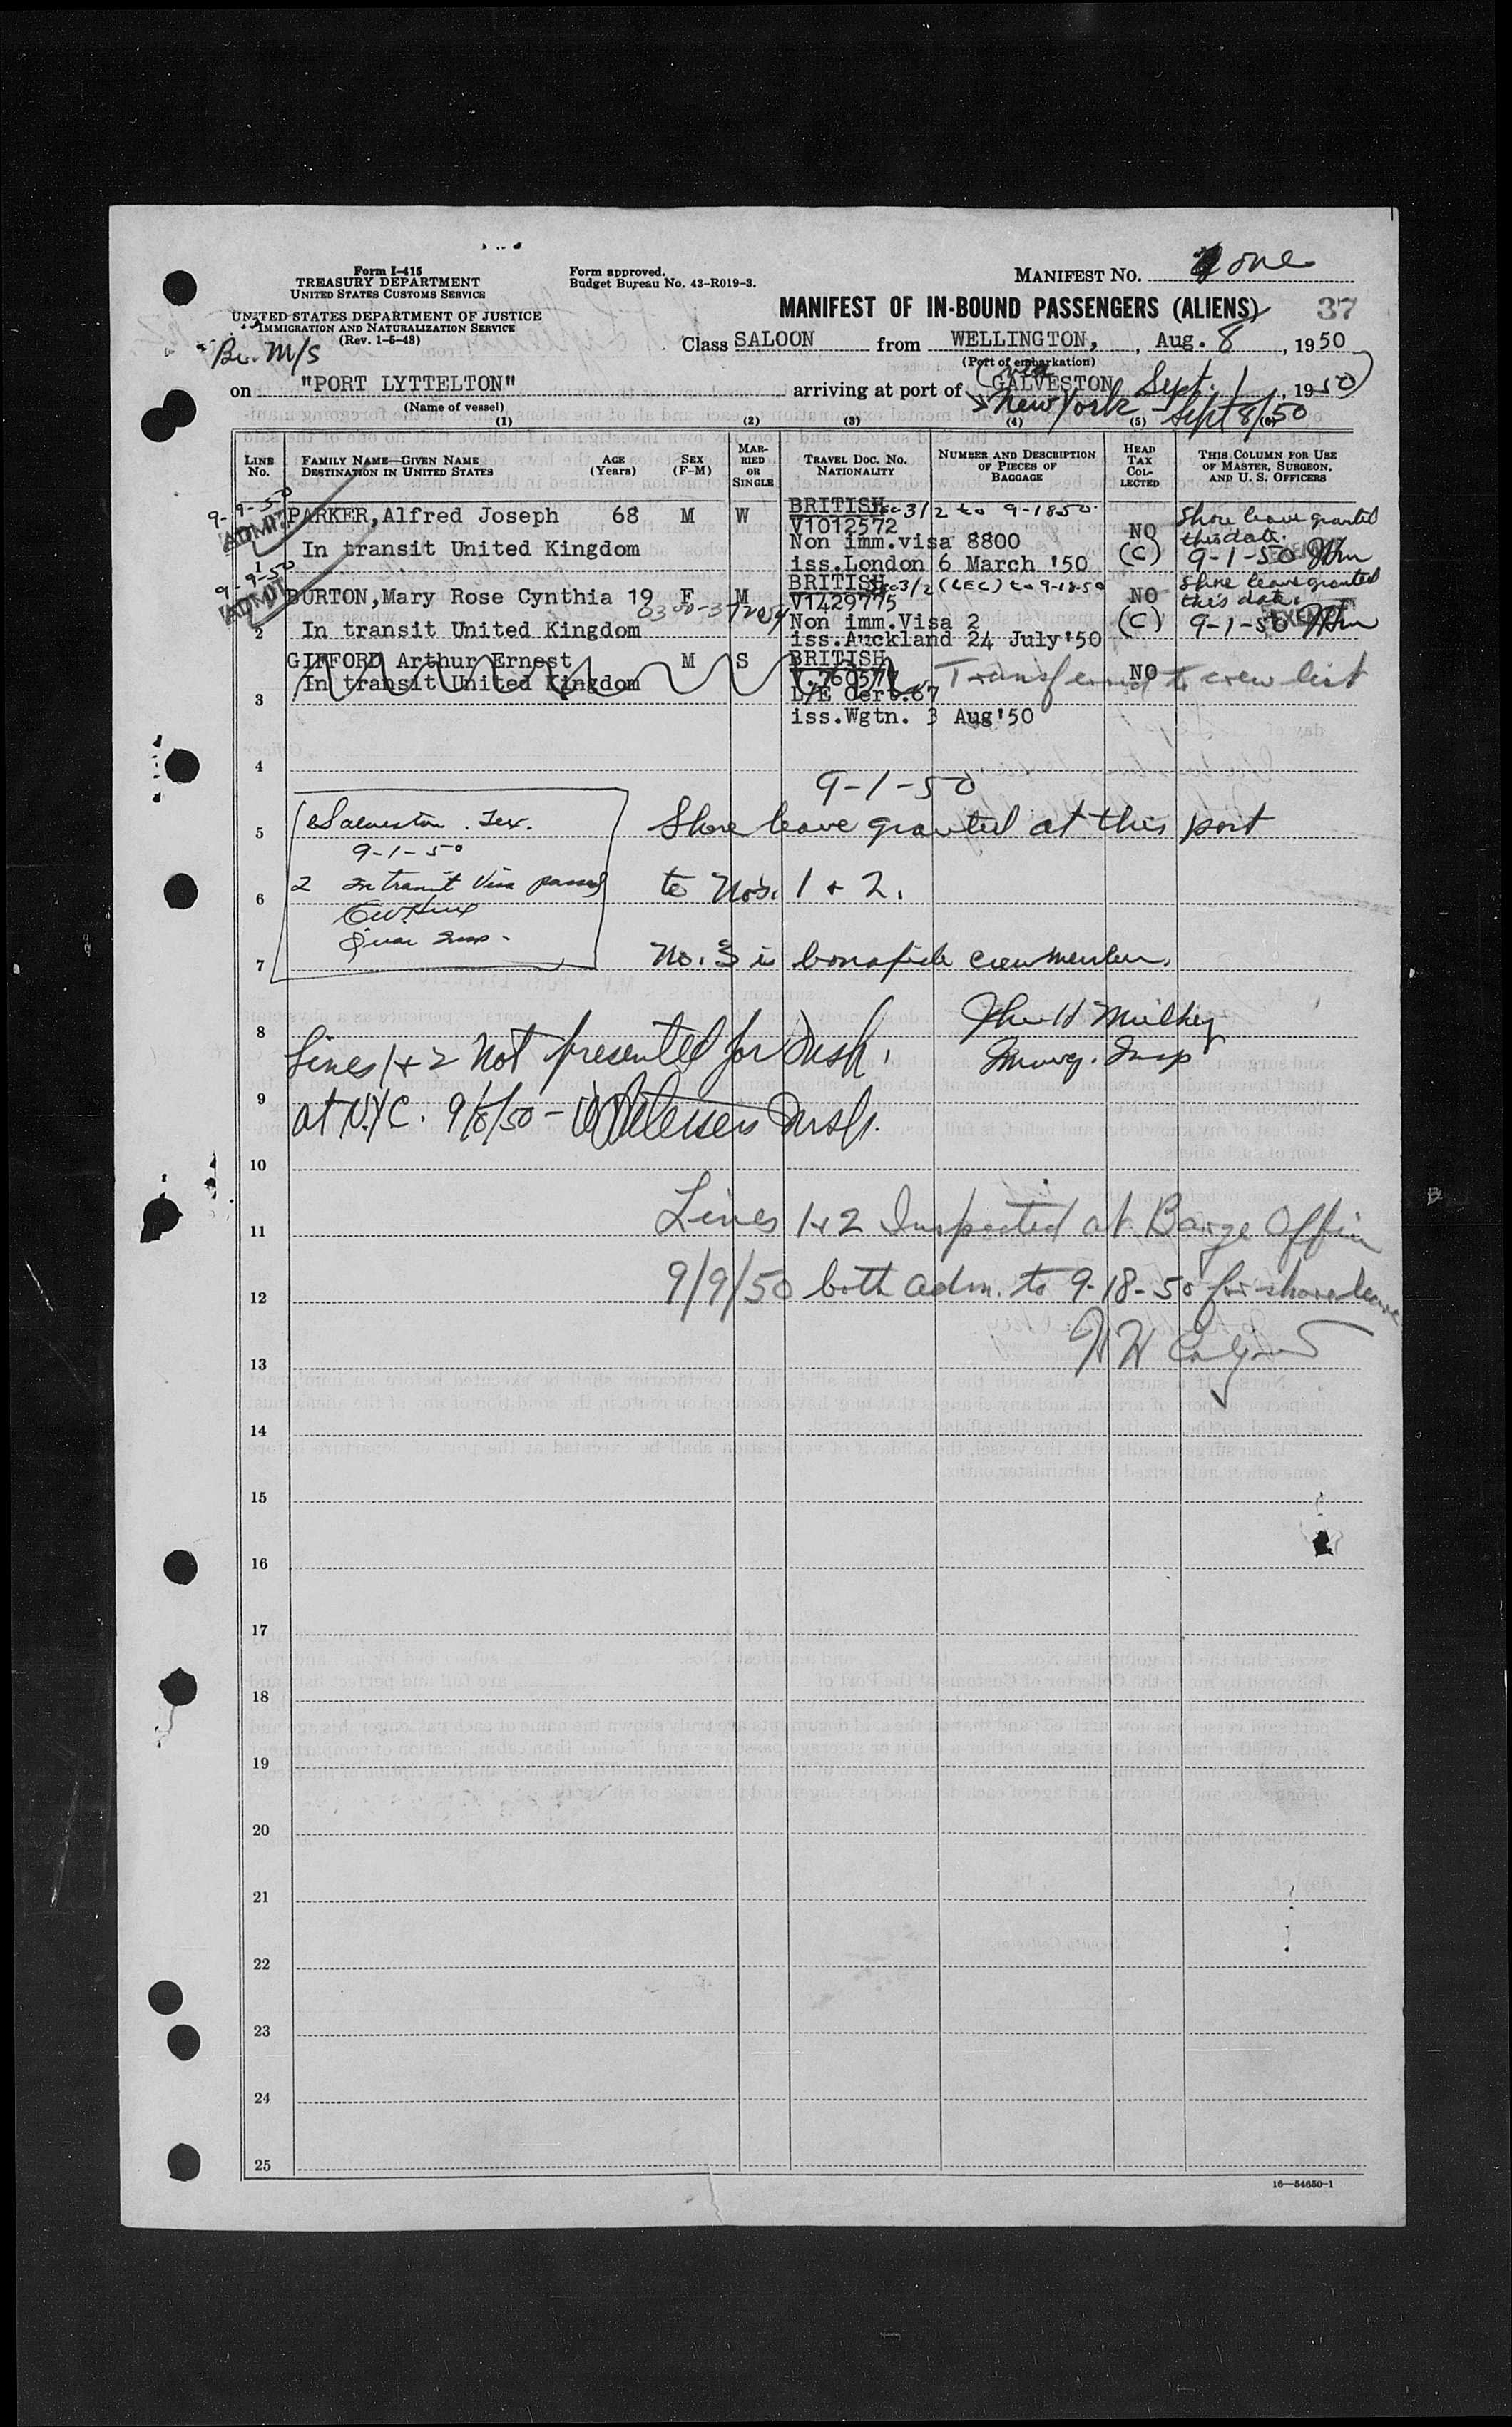 Form I-415
TREASURY DEPARTMENT
UNITED STATES CUSTOMS SERVICE
UNITED STATES DEPARTMENT OF JUSTICE
IMMIGRATION AND NATURALIZATION SERVICE
(Rev. 1-5-48)
Form approved.
Budget Bureau No. 43-R019-3.
MANIFEST NO. one
MANIFEST OF IN-BOUND PASSENGERS (ALIENS) 37
Class SALOON from WELLINGTON, , Aug. 8 , 1950
(Port of embarkation)
Br. M/S
on "PORT LYTTELTON" arriving at port of (via GALVESTON Sept. 1 , 1950)
(Name of vessel)
New York - Sept 8/50
(1) (2) (3) (4) (5) (6)
LINE No.
FAMILY NAME—GIVEN NAME
DESTINATION IN UNITED STATES
AGE (Years)
SEX (F-M)
MARRIED OR SINGLE
TRAVEL DOC. NO. NATIONALITY
NUMBER AND DESCRIPTION OF PIECES OF BAGGAGE
HEAD TAX COLLECTED
THIS COLUMN FOR USE OF MASTER, SURGEON, AND U. S. OFFICERS
9-9-50
ADMIT
1 PARKER, Alfred Joseph 68 M W BRITISH Sec 3/2 to 9-18-50 NO Shore leave granted
V1012572 this date.
In transit United Kingdom Non imm.visa 8800 (C) 9-1-50
iss.London 6 March '50
9-9-50
ADMIT
2 BURTON, Mary Rose Cynthia 19 F M BRITISH Sec 3/2 (LEC) to 9-18-50 NO Shore leave granted
V1429775 this date.
In transit United Kingdom Non imm.Visa 2 (C) 9-1-50 EXEMPT
iss.Auckland 24 July '50
GIFFORD Arthur Ernest M S BRITISH NO
In transit United Kingdom Transferred to crew list
3 L/E Cert.67
iss.Wgtn. 3 Aug '50
4
9-1-50
5 Shore leave granted at this port
6 to Nos. 1 + 2.
7 No. 3 is bonafide crewmember.
Immig. Insp
Galveston. Tex.
9-1-50
2 In transit Visa passed
Quar Insp.
8 Lines 1 + 2 Not presented for Insp.
9 at N.Y.C. 9/8/50 - Insp.
10
11 Lines 1+2 Inspected at Barge Office
12 9/9/50 both adm. to 9-18-50 for shore leave
13
14
15
16
17
18
19
20
21
22
23
24
25
16—54650-1